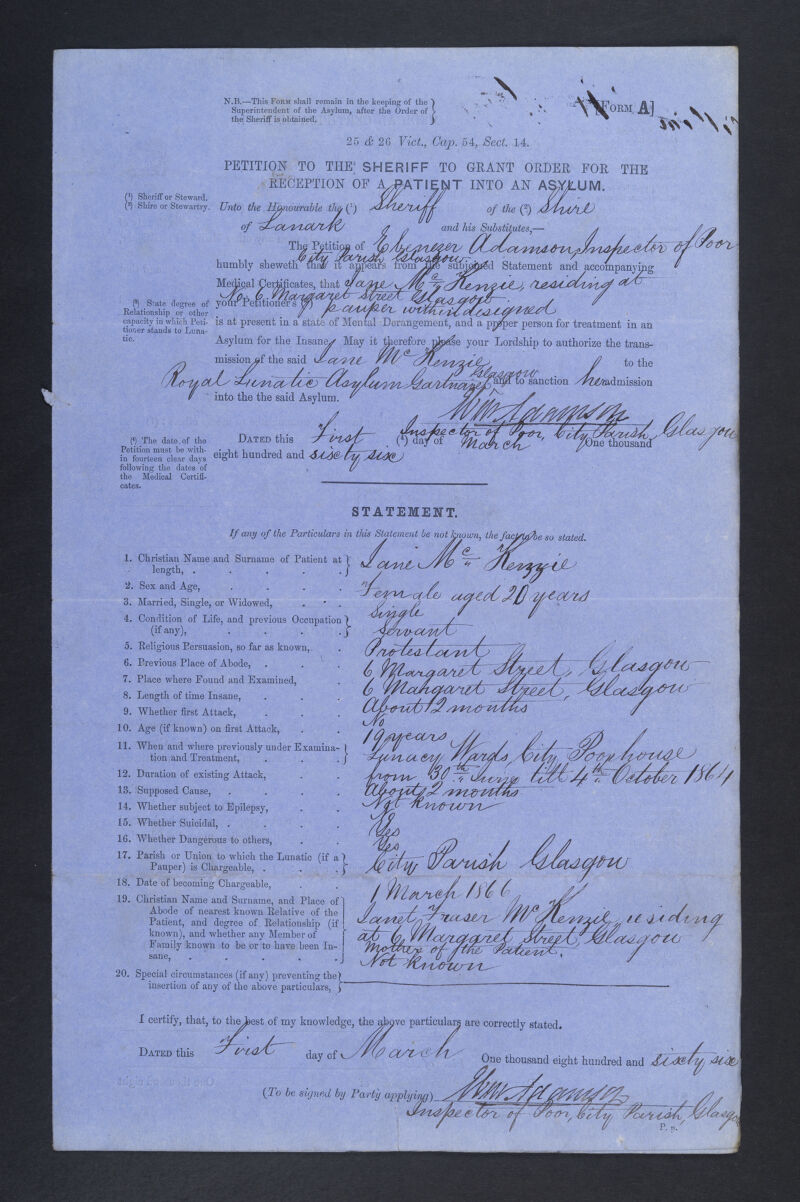 N.B.—This Form shall remain in the keeping of the
Superintendent of the Asylum, after the Order of
the Sheriff is obtained.
[Form A]
25 & 26 Vict., Cap. 54, Sect. 14.
PETITION TO THE SHERIFF TO GRANT ORDER FOR THE
RECEPTION OF A PATIENT INTO AN ASYLUM.
(¹) Sheriff or Steward.
(²) Shire or Stewartry.
Unto the Honourable the (¹) Sheriff of the (²) Shire
of Lanark and his Substitutes,—
The Petition of Ebenezer Adamson, Inspector of Poor
City Parish Glasgow
humbly sheweth that it appears from the subjoined Statement and accompanying
Medical Certificates, that Jane McKenzie, residing at
No. 6 Margaret Street Glasgow
(³) State degree of
Relationship or other
capacity in which Peti-
tioner stands to Luna-
tic.
your Petitioner's (³) pauper within designed
is at present in a state of Mental Derangement, and a proper person for treatment in an
Asylum for the Insane. May it therefore please your Lordship to authorize the trans-
mission of the said Jane McKenzie to the
Royal Lunatic Asylum Gartnavel, Glasgow and to sanction her admission
into the the said Asylum.
Eben Adamson
Inspector of Poor, City Parish, Glasgow
(⁴) The date of the
Petition must be with-
in fourteen clear days
following the dates of
the Medical Certifi-
cates.
Dated this First (⁴) day of March One thousand
eight hundred and sixty six
STATEMENT.
If any of the Particulars in this Statement be not known, the fact to be so stated.
1. Christian Name and Surname of Patient at
length, . Jane McKenzie
2. Sex and Age, Female aged 20 years
3. Married, Single, or Widowed, Single
4. Condition of Life, and previous Occupation
(if any), Servant
5. Religious Persuasion, so far as known, Protestant
6. Previous Place of Abode, 6 Margaret Street, Glasgow
7. Place where Found and Examined, 6 Margaret Street, Glasgow
8. Length of time Insane, About 12 months
9. Whether first Attack, No
10. Age (if known) on first Attack, 19 years
11. When and where previously under Examina-
tion and Treatment, Lunacy Wards, City Poorhouse
from 30th June till 4th October 1864
12. Duration of existing Attack, About 2 months
13. Supposed Cause, Not known
14. Whether subject to Epilepsy, No
15. Whether Suicidal, Yes
16. Whether Dangerous to others, Yes
17. Parish or Union to which the Lunatic (if a
Pauper) is Chargeable, City Parish Glasgow
18. Date of becoming Chargeable, 1 March 1866
19. Christian Name and Surname, and Place of
Abode of nearest known Relative of the
Patient, and degree of Relationship (if
known), and whether any Member of
Family known to be or to have been In-
sane,
Janet Fraser McKenzie, residing
at 6 Margaret Street, Glasgow
Mother of the Patient.
Not known
20. Special circumstances (if any) preventing the
insertion of any of the above particulars,
I certify, that, to the best of my knowledge, the above particulars are correctly stated.
Dated this First day of March One thousand eight hundred and sixty six
(To be signed by Party applying) Eben Adamson
Inspector of Poor, City Parish, Glasgow
P. p.